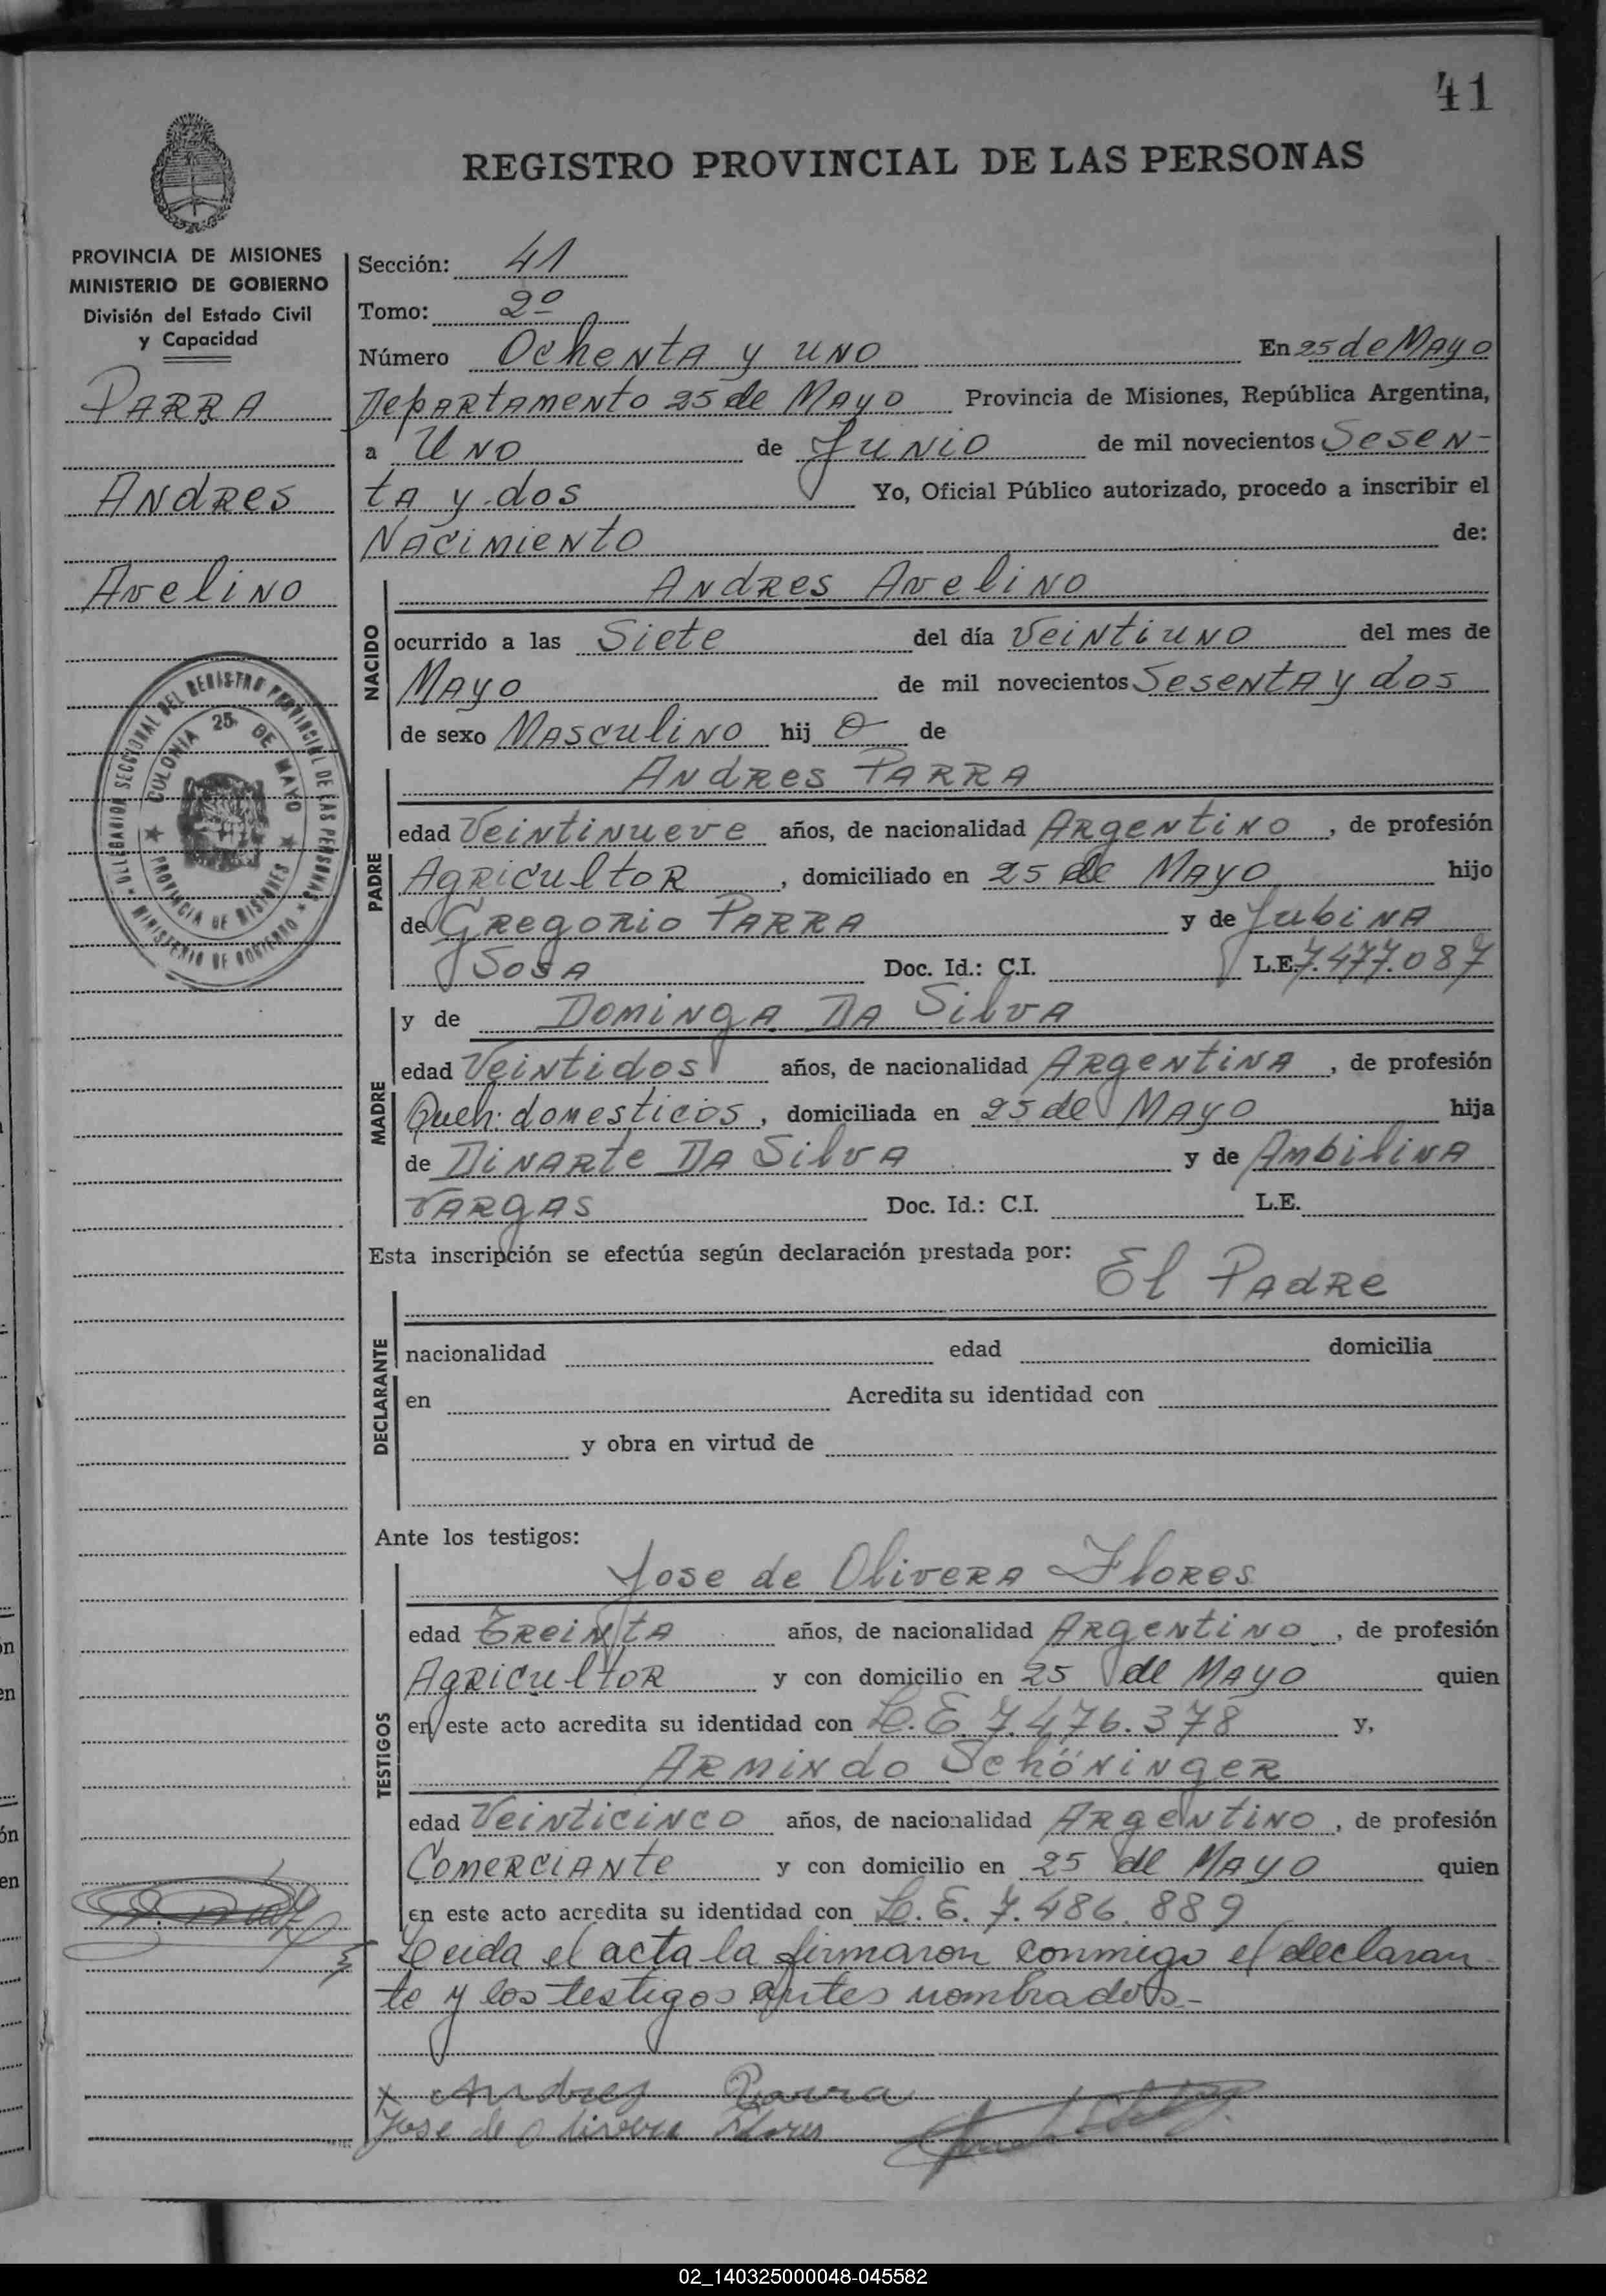 41
REGISTRO PROVINCIAL DE LAS PERSONAS
PROVINCIA DE MISIONES
MINISTERIO DE GOBIERNO
División del Estado Civil
y Capacidad
PARRA
Andres
Avelino
DELEGACION SECCIONAL DEL REGISTRO PROVINCIAL DE LAS PERSONAS
MINISTERIO DE GOBIERNO
COLONIA 25 DE MAYO
PROVINCIA DE MISIONES
Sección: 41
Tomo: 2º
Número Ochenta y uno En 25 de Mayo
Departamento 25 de Mayo Provincia de Misiones, República Argentina,
a Uno de Junio de mil novecientos Sesen-
ta y dos Yo, Oficial Público autorizado, procedo a inscribir el
Nacimiento de:
Andres Avelino
NACIDO
ocurrido a las Siete del día Veintiuno del mes de
Mayo de mil novecientos Sesenta y dos
de sexo Masculino hij o de
Andres Parra
PADRE
edad Veintinueve años, de nacionalidad Argentino, de profesión
Agricultor, domiciliado en 25 de Mayo hijo
de Gregorio Parra y de Jubina
Sosa Doc. Id.: C.I. L.E. 7.477.087
y de Dominga Da Silva
MADRE
edad Veintidos años, de nacionalidad Argentina, de profesión
Queh. domesticos, domiciliada en 25 de Mayo hija
de Dinarte Da Silva y de Ambilina
Vargas Doc. Id.: C.I. L.E.
Esta inscripción se efectúa según declaración prestada por:
El Padre
DECLARANTE
nacionalidad edad domicilia
en Acredita su identidad con
y obra en virtud de
Ante los testigos:
Jose de Olivera Flores
TESTIGOS
edad Treinta años, de nacionalidad Argentino, de profesión
Agricultor y con domicilio en 25 de Mayo quien
en este acto acredita su identidad con L.E 7.476.378 y,
Armindo Schöninger
edad Veinticinco años, de nacionalidad Argentino, de profesión
Comerciante y con domicilio en 25 de Mayo quien
en este acto acredita su identidad con L.E. 7.486.889
Leida el acta la firmaron conmigo el declaran-
te y los testigos antes nombrados.-
x Andres Parra
Jose de Olivera Flores
02_140325000048-045582